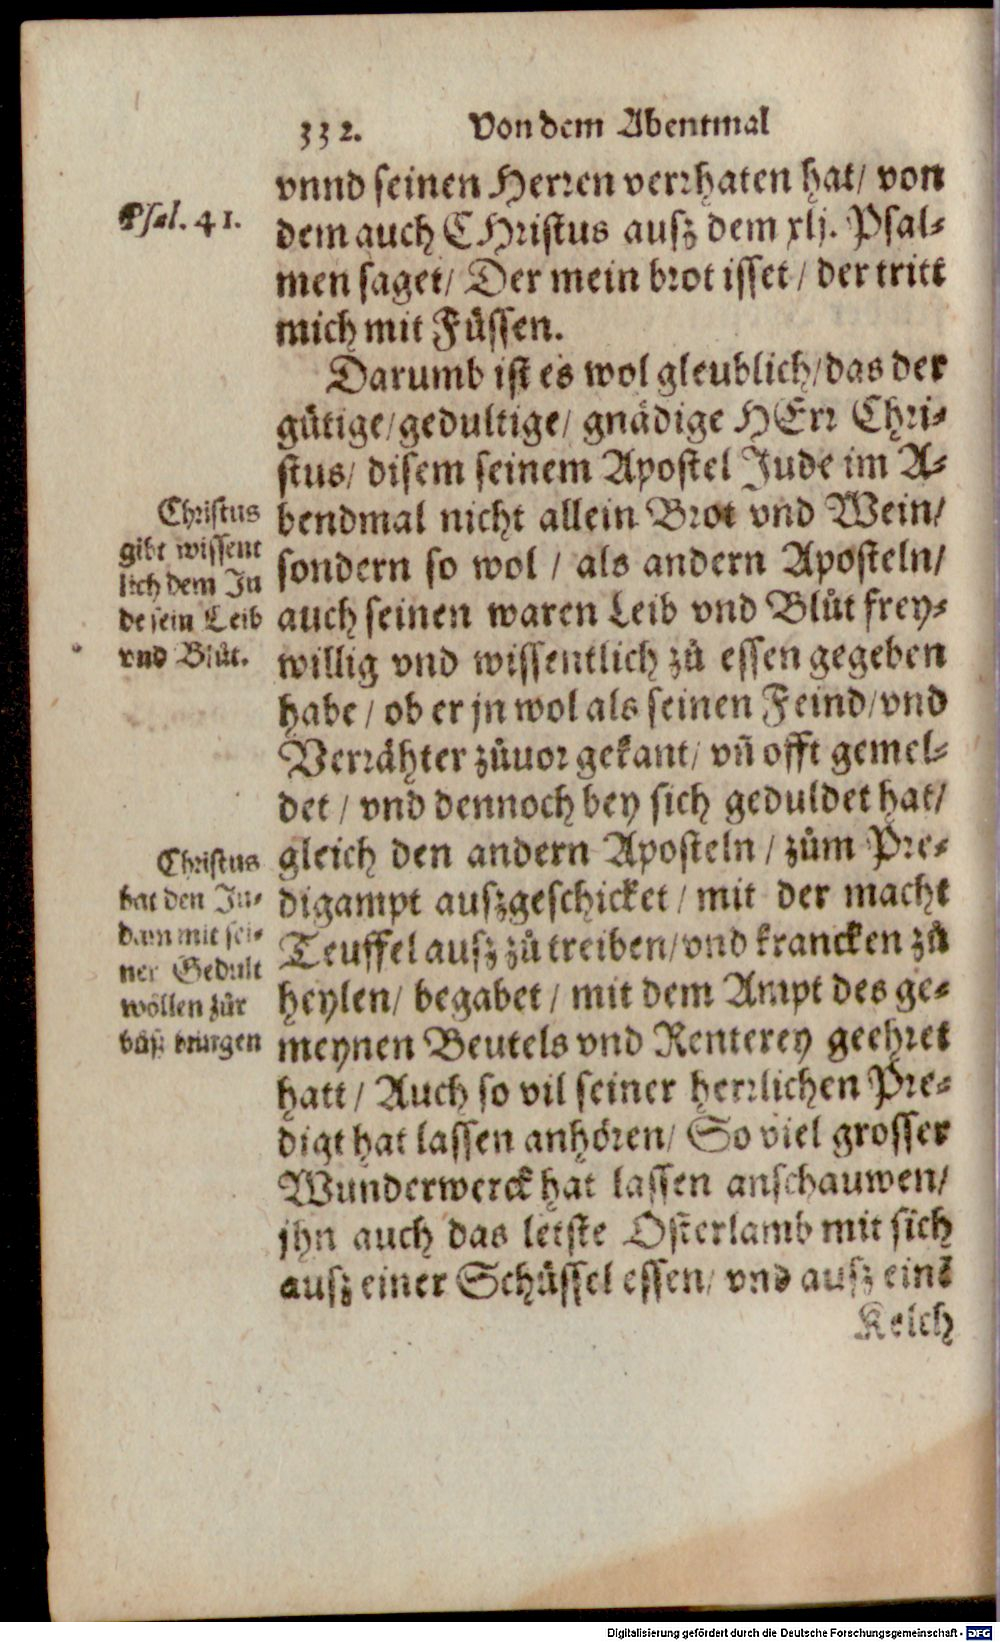 332. Von dem Abentmal
vnnd seinen Herren verrhaten hat/ von
Psal. 41.
dem auch CHristus ausz dem xlj. Psal-
men saget/ Der mein brot isset/ der tritt
mich mit Füssen.
Darumb ist es wol gleublich/ das der
gütige/ gedultige/ gnädige HErr Chri-
stus/ disem seinem Apostel Jude im A-
bendmal nicht allein Brot vnd Wein/
sondern so wol/ als andern Aposteln/
auch seinen waren Leib vnd Blůt frey-
willig vnd wissentlich zů essen gegeben
habe/ ob er jn wol als seinen Feind/ vnd
Verrähter zůuor gekant/ vñ offt gemel-
det/ vnd dennoch bey sich geduldet hat/
Christus
gibt wissent
lich dem Ju
de sein Leib
vnd Blůt.
gleich den andern Aposteln/ zům Pre-
digampt auszgeschicket/ mit der macht
Teuffel ausz zů treiben/ vnd krancken zů
heylen/ begabet/ mit dem Ampt des ge-
meynen Beutels vnd Renterey geehret
Christus
hat den Ju-
dam mit sei-
ner Gedult
wöllen zůr
bůsz bringen
hatt/ Auch so vil seiner herrlichen Pre-
digt hat lassen anhören/ So viel grosser
Wunderwerck hat lassen anschauwen/
jhn auch das letste Osterlamb mit sich
ausz einer Schüssel essen/ vnd ausz einẽ
Kelch
Digitalisierung gefördert durch die Deutsche Forschungsgemeinschaft - DFG